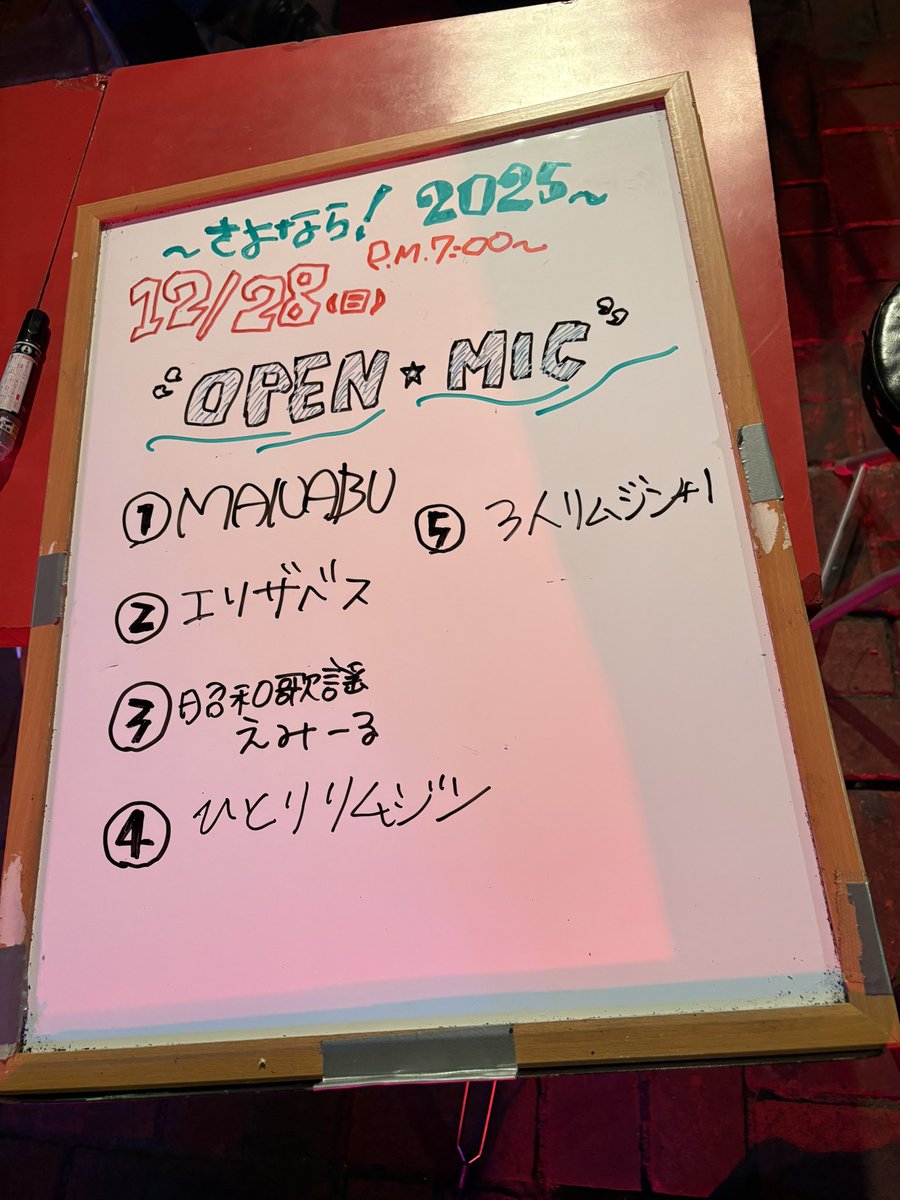 ～さよなら！ 2025～
12/28(日) P.M.7:00～
"OPEN☆MIC"
① MANABU
② エリザベス
③ 昭和歌謡
えみーる
④ ひとりリムジン
⑤ 3人リムジン+1